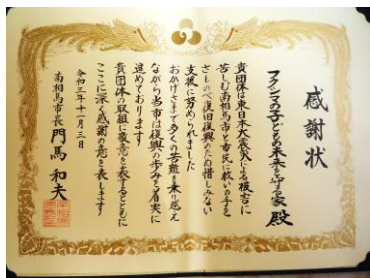 感謝状
フクシマの子どもの未来を守る家 殿
貴団体は東日本大震災による被害に
苦しむ南相馬市と市民に救いの手を
さしのべ復旧復興のため惜しみない
支援に努められました
おかげさまで多くの苦難を乗り越え
ながら当市は復興の歩みを着実に
進めております
貴団体の取組に敬意を表するとともに
ここに深く感謝の意を表します
令和三年十一月三日
南相馬市長 門馬 和夫